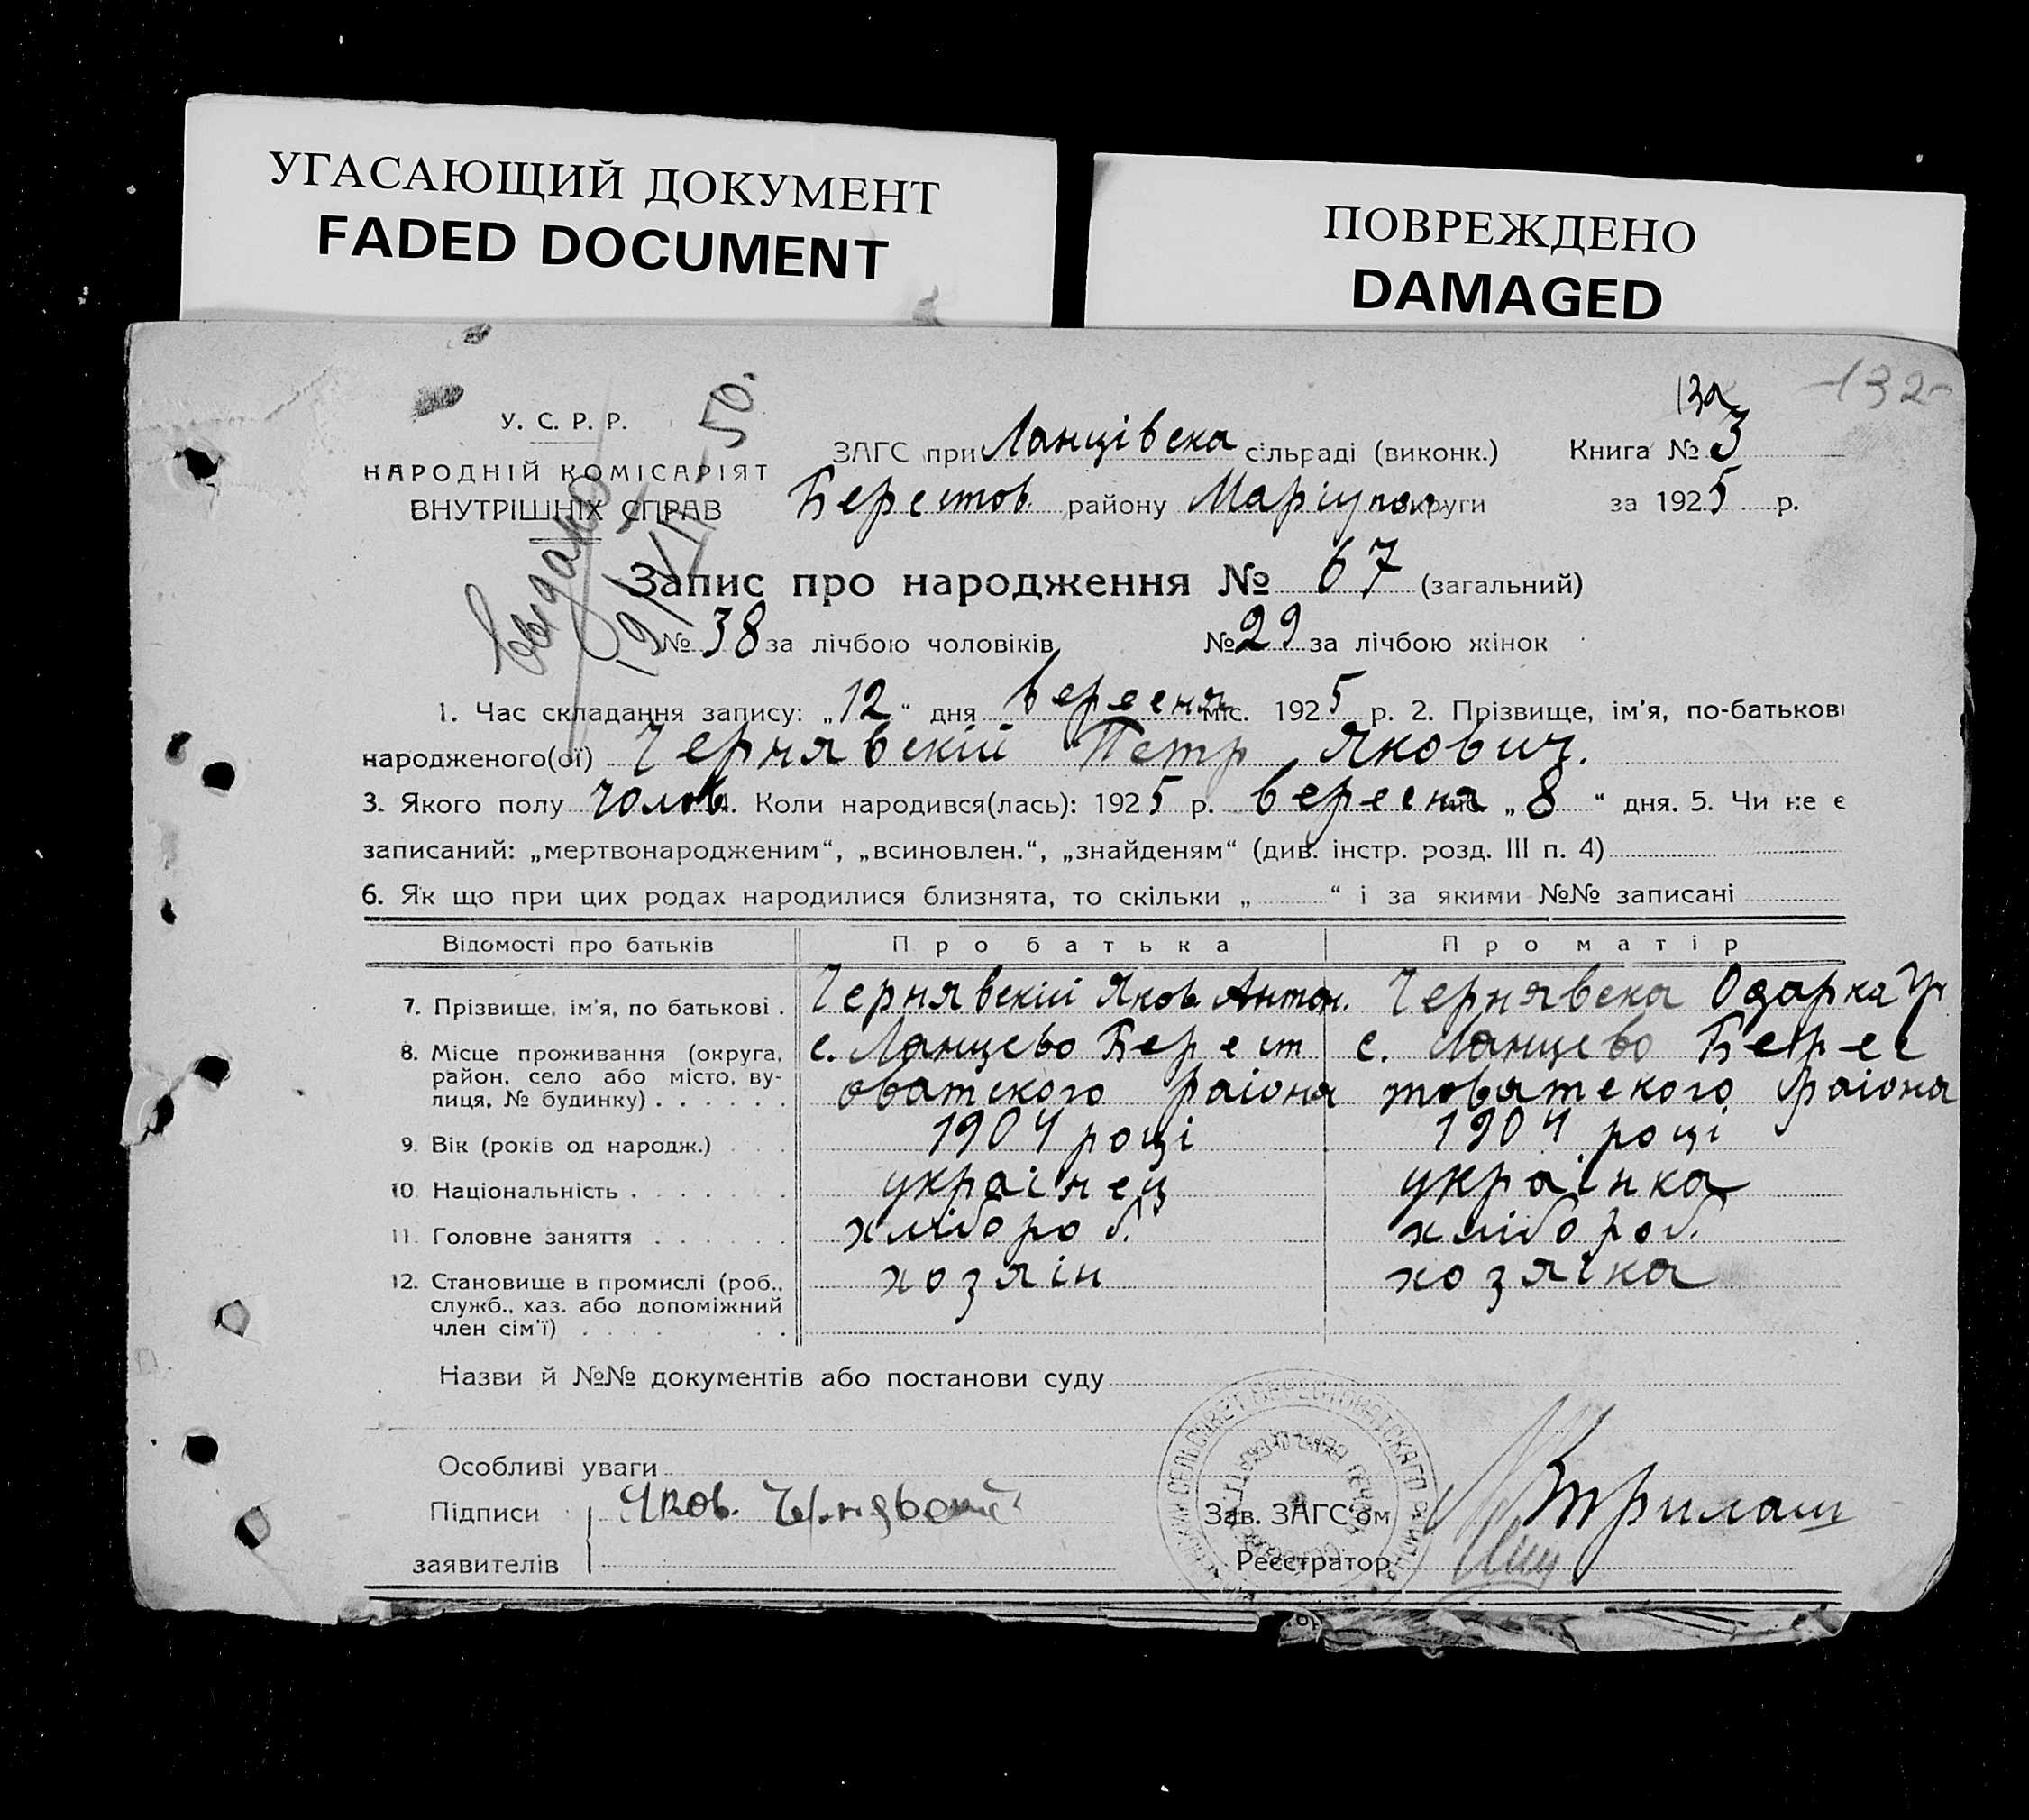 УГАСАЮЩИЙ ДОКУМЕНТ
FADED DOCUMENT
ПОВРЕЖДЕНО
DAMAGED
132
-132-
У. С. Р. Р.
НАРОДНІЙ КОМІСАРІЯТ
ВНУТРІШНІХ СПРАВ
ЗАГС при Ланцівска сільраді (виконк.) Книга № 3
Берестов. району Маріупол. округи за 1925 р.
выдано
19/VI-50.
Запис про народження № 67 (загальний)
№ 38 за лічбою чоловіків № 29 за лічбою жінок
1. Час складання запису: „12“ дня вересня міс. 1925 р. 2. Прізвище, ім’я, по-батькові
народженого(ої) Чернявскій Петр Якович.
3. Якого полу чолов. 4. Коли народився(лась): 1925 р. вересня міс. „8“ дня. 5. Чи не є
записаний: „мертвонародженим“, „всиновлен.“, „знайденям“ (див. інстр. розд. III п. 4)
6. Як що при цих родах народилися близнята, то скільки „ “ і за якими №№ записані
Відомості про батьків Про батька Про матір
7. Прізвище, ім’я, по батькові . Чернявскій Яков Антон. Чернявска Одарка Гр
8. Місце проживання (округа, с. Ланцево Берест с. Ланцево Берес
район, село або місто, ву- оватского раіона товатского раіона
лиця, № будинку)
9. Вік (років од народж.) 1904 році 1904 році
10. Національність украінец украінка
11. Головне заняття хлібороб. хлібороб.
12. Становище в промислі (роб., хозяін хозяіка
служб., хаз. або допоміжний
член сім’ї)
Назви й №№ документів або постанови суду
Особливі уваги
Підписи Яков. Чернявский
заявителів
Зав. ЗАГС’ом
Реєстратор